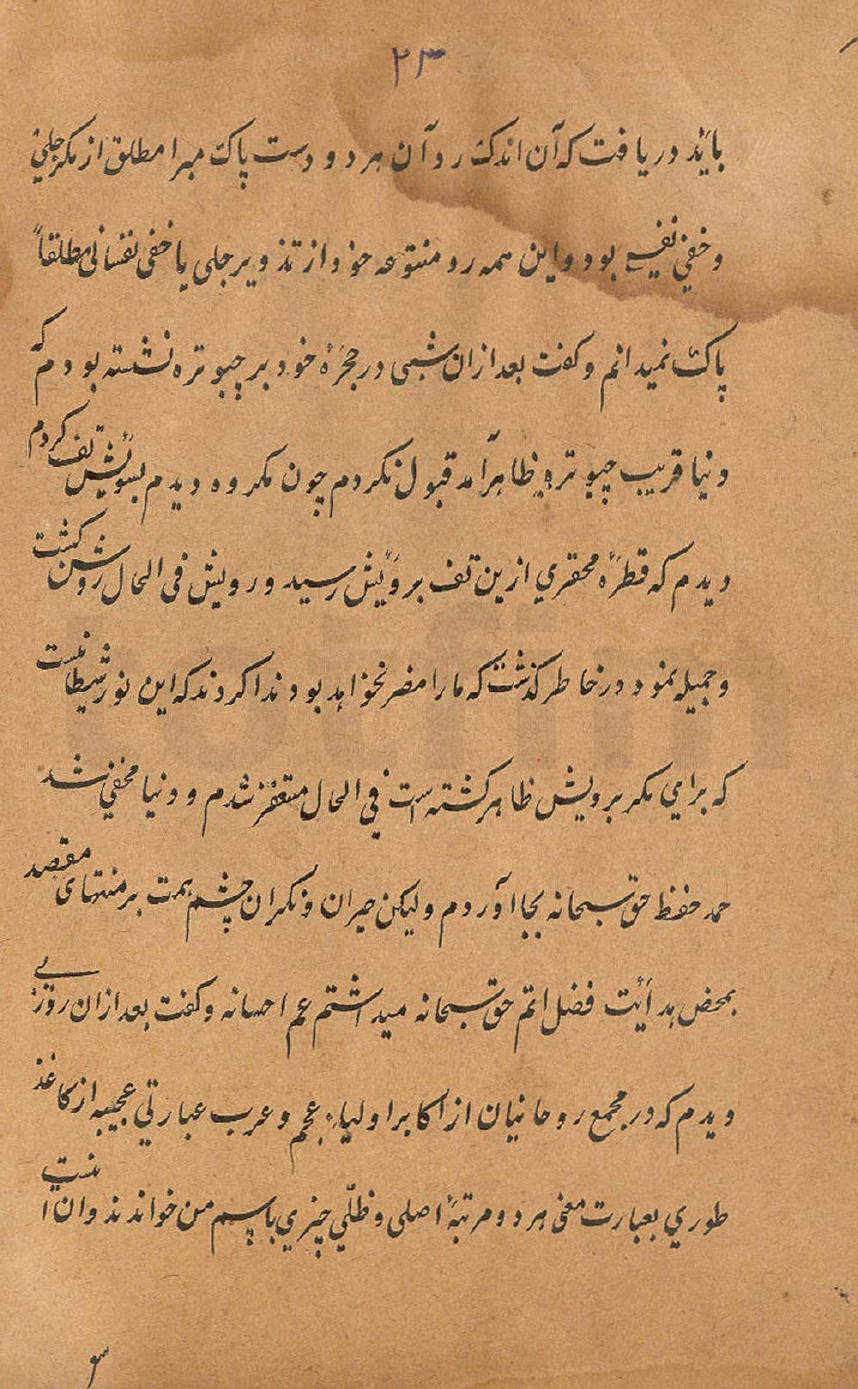 ۲۳
باید دریافت که آن اندک رد آن هر دو دست پاک مبرا مطلق از مکر جلی
و خفی نفیسے بود و این همه رد متنوعه خود از تذویر جلی یا خفی نفسانی مطلقاً
پاک نمیدانم و گفت بعد ازان شبی در حجرهٔ خود بر چبوتره نشسته بودم که
دنیا قریب چبوتره ظاهر آمد قبول نکردم چون مکروه دیدم بسویش تف کردم
دیدم که قطرهٔ محقری ازین تف برویش رسید و رویش فی الحال روشن گشت
و جمیله نمود در خاطر گذشت که ما را مضر نخواهد بود ندا کردند که این نور شیطانیست
که برای مکر برویش ظاهر گشته است فی الحال متنفر شدم و دنیا مخفی شد
حمد حفظ حق سبحانه بجا آوردم ولیکن حیران و نگران چشم همت بر منتهای مقصد
بمحض هدایت فضل اتم حق سبحانه میداشتم عم احسانه و گفت بعد ازان روزے
دیدم که در مجمع روحانیان از اکابر اولیاء عجم و عرب عبارتی عجیبه از کاغذ
طوری بعبارت معنی هر دو مرتبهٔ اصلی و ظلّی چیزی باسم من خواندند و ان اینست